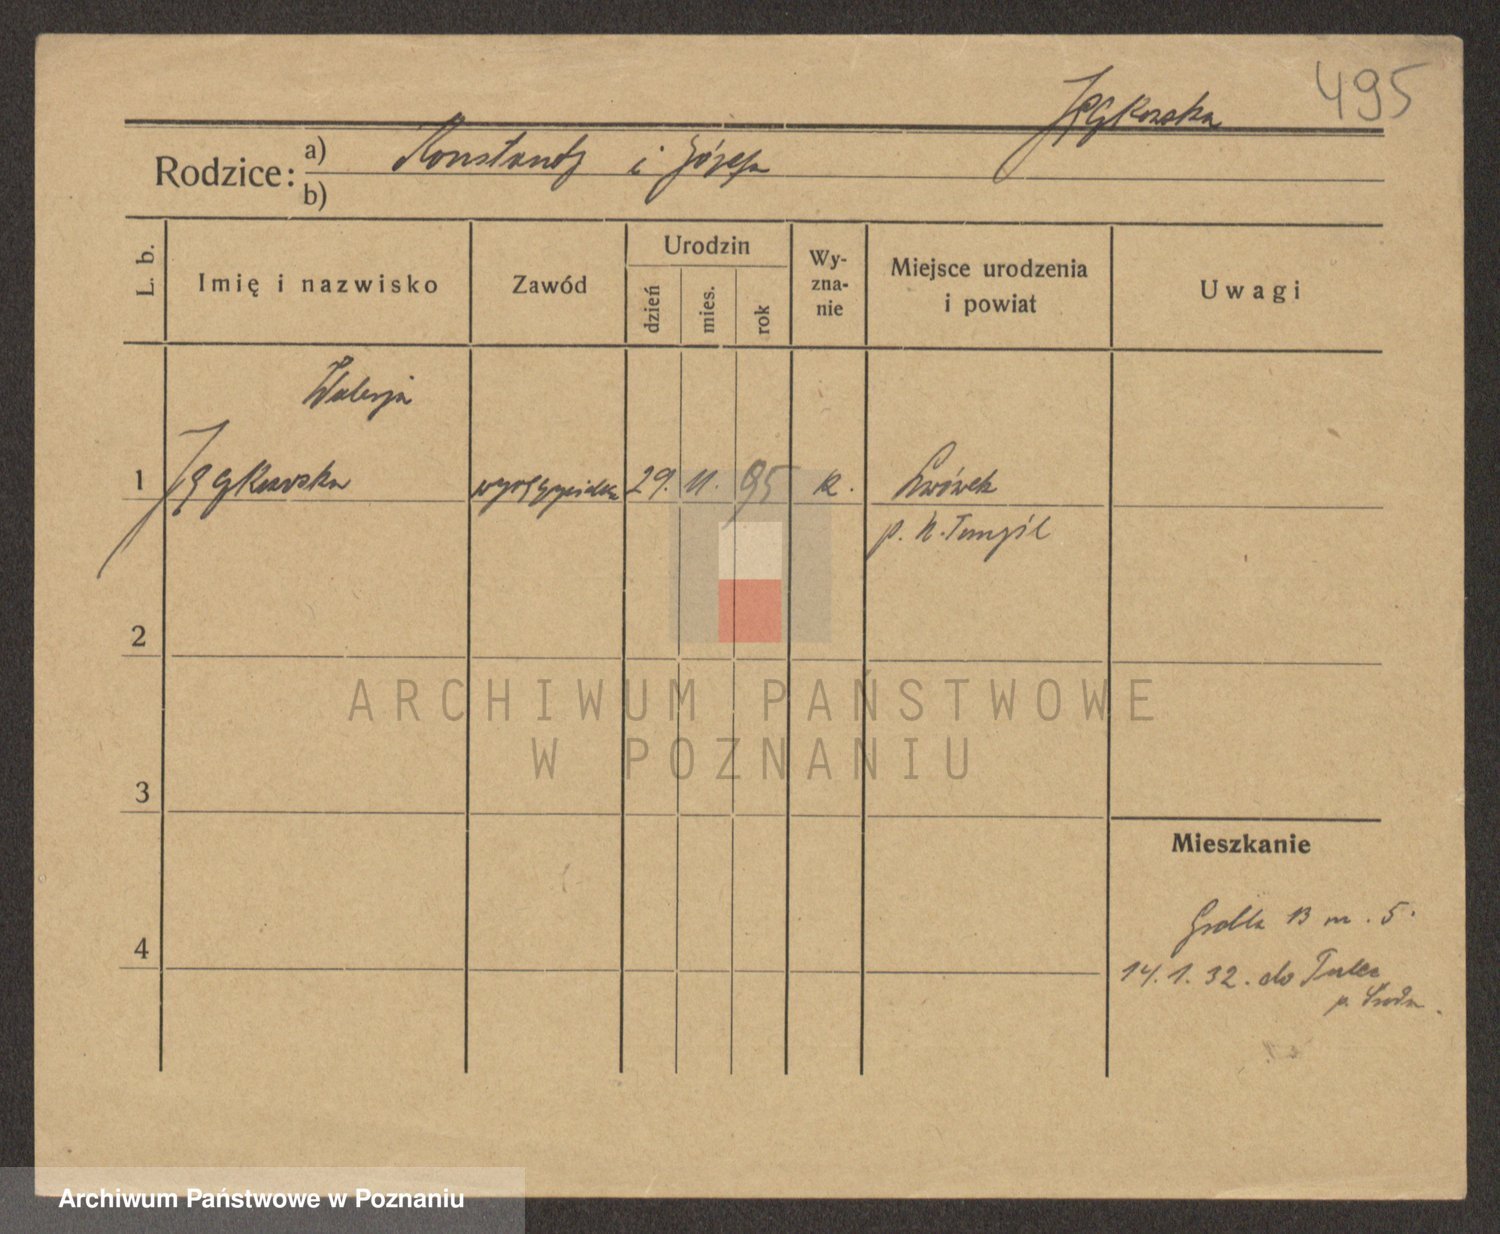 495
Rodzice: a) Konstanty i Józefa
b)
L. b.
Imię i nazwisko
Zawód
Urodzin
dzień
mies.
rok
Wy-
zna-
nie
Miejsce urodzenia
i powiat
Uwagi
Walerja
1 29. 11. 95 k. Lwówek
p. N. Tomyśl
2
ARCHIWUM PAŃSTWOWE
W POZNANIU
3
Mieszkanie
Grobla 13 m. 5.
4
14. 1. 32. do Tulce
p. Środa.
Archiwum Państwowe w Poznaniu